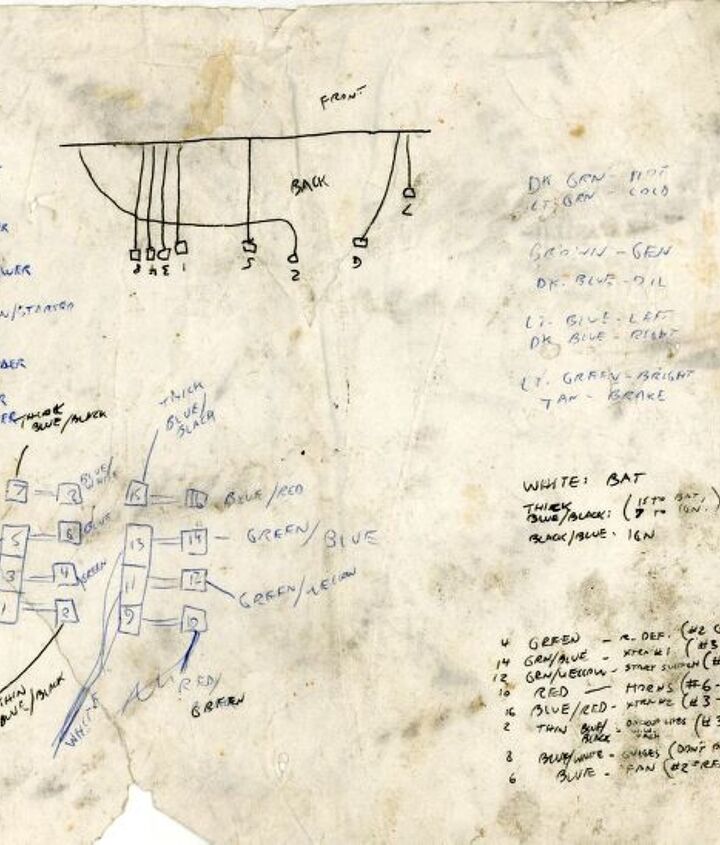 FRONT
BACK
8 4 3 1 5 2 6 7
DK GRN - HOT
LT. GRN - COLD
BROWN - GEN
DK. BLUE - OIL
LT. BLUE - LEFT
DK BLUE - RIGHT
LT. GREEN - BRIGHT
TAN - BRAKE
THICK
BLUE/BLACK
THICK
BLUE/
BLACK
7 8 BLUE/WHITE
15 16 BLUE/RED
5 6 BLUE
13 14 - GREEN/BLUE
3 4 GREEN
11 12 GREEN/YELLOW
1 2
9 10
THIN
BLUE/BLACK
WHITE
RED/
GREEN
WHITE: BAT
THICK
BLUE/BLACK: (15 TO BAT,
7 TO IGN.)
BLACK/BLUE - IGN
4 GREEN - R. DEF. (#2
14 GRN/BLUE - XTRA #1 (#3
12 GRN/YELLOW - START SWITCH (#
10 RED - HORNS (#6 -
16 BLUE/RED - XTRA #2 (#3
2 THIN BLUE/BLACK - (#3
8 BLUE/WHITE - GUAGES (DON'T
6 BLUE - FAN (#2 =